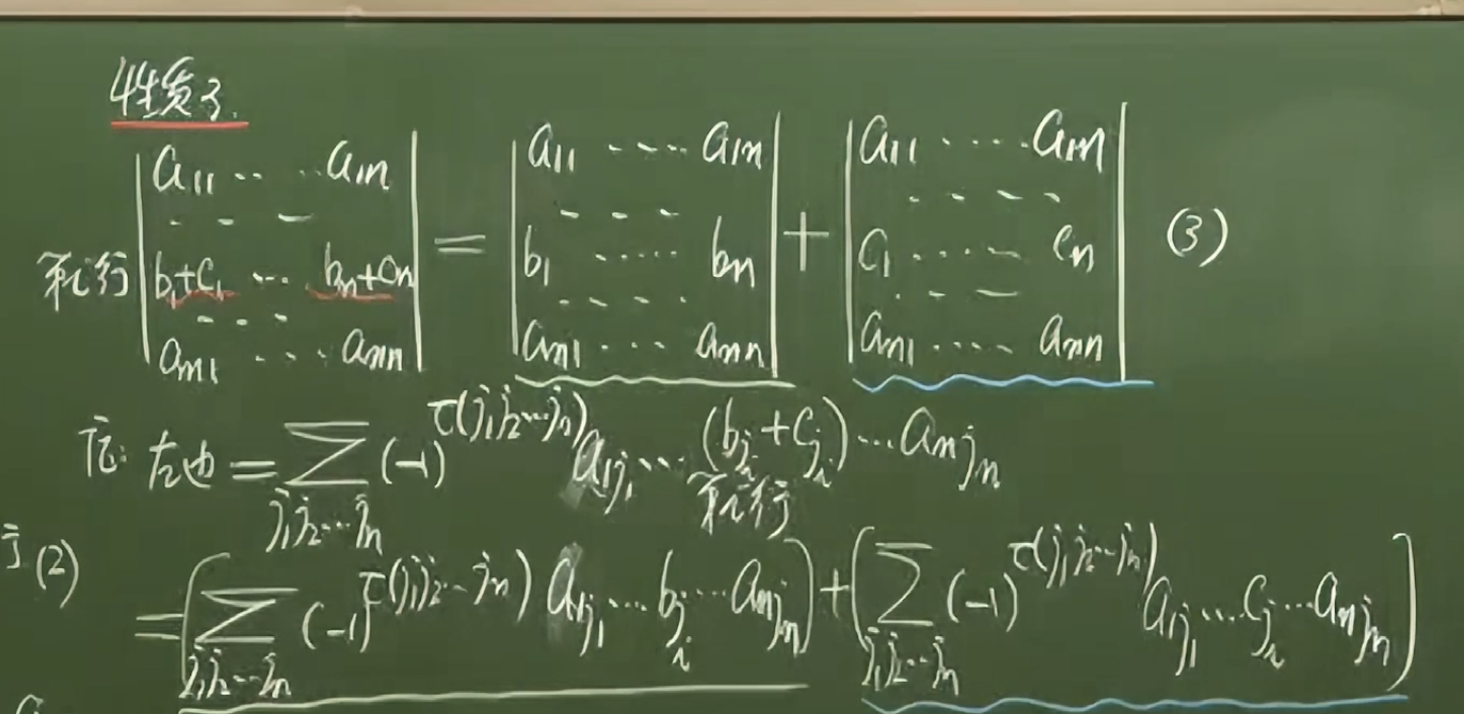 性质3.
第i行 | a₁₁ ‥ ‥ a₁ₙ ; - - - ; b₁+c₁ … bₙ+cₙ ; - - - ; aₙ₁ ‥ ‥ aₙₙ | = | a₁₁ ---- a₁ₙ ; - - - ; b₁ ····· bₙ ; - - - - ; aₙ₁ ··· aₙₙ | + | a₁₁ ···· a₁ₙ ; - - - - ; c₁ ····- cₙ ; - - - ; aₙ₁ ···· aₙₙ | (3)
证: 左边 = ∑_{j₁j₂…jₙ} (-1)^{τ(j₁j₂…jₙ)} a_{1j₁} … (b_{jᵢ}+c_{jᵢ}) … a_{njₙ}
第i行
(2)
= ( ∑_{j₁j₂…jₙ} (-1)^{τ(j₁j₂…jₙ)} a_{1j₁} … b_{jᵢ} … a_{njₙ} ) + ( ∑_{j₁j₂…jₙ} (-1)^{τ(j₁j₂…jₙ)} a_{1j₁} … c_{jᵢ} … a_{njₙ} )